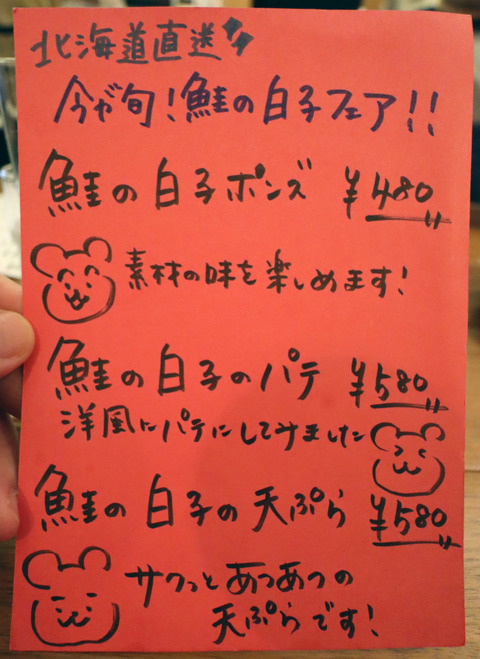 北海道直送
今が旬!鮭の白子フェア!!
鮭の白子ポンズ ¥480
素材の味を楽しめます!
鮭の白子のパテ ¥580
洋風にパテにしてみました
鮭の白子の天ぷら ¥580
サクっとあつあつの
天ぷらです!